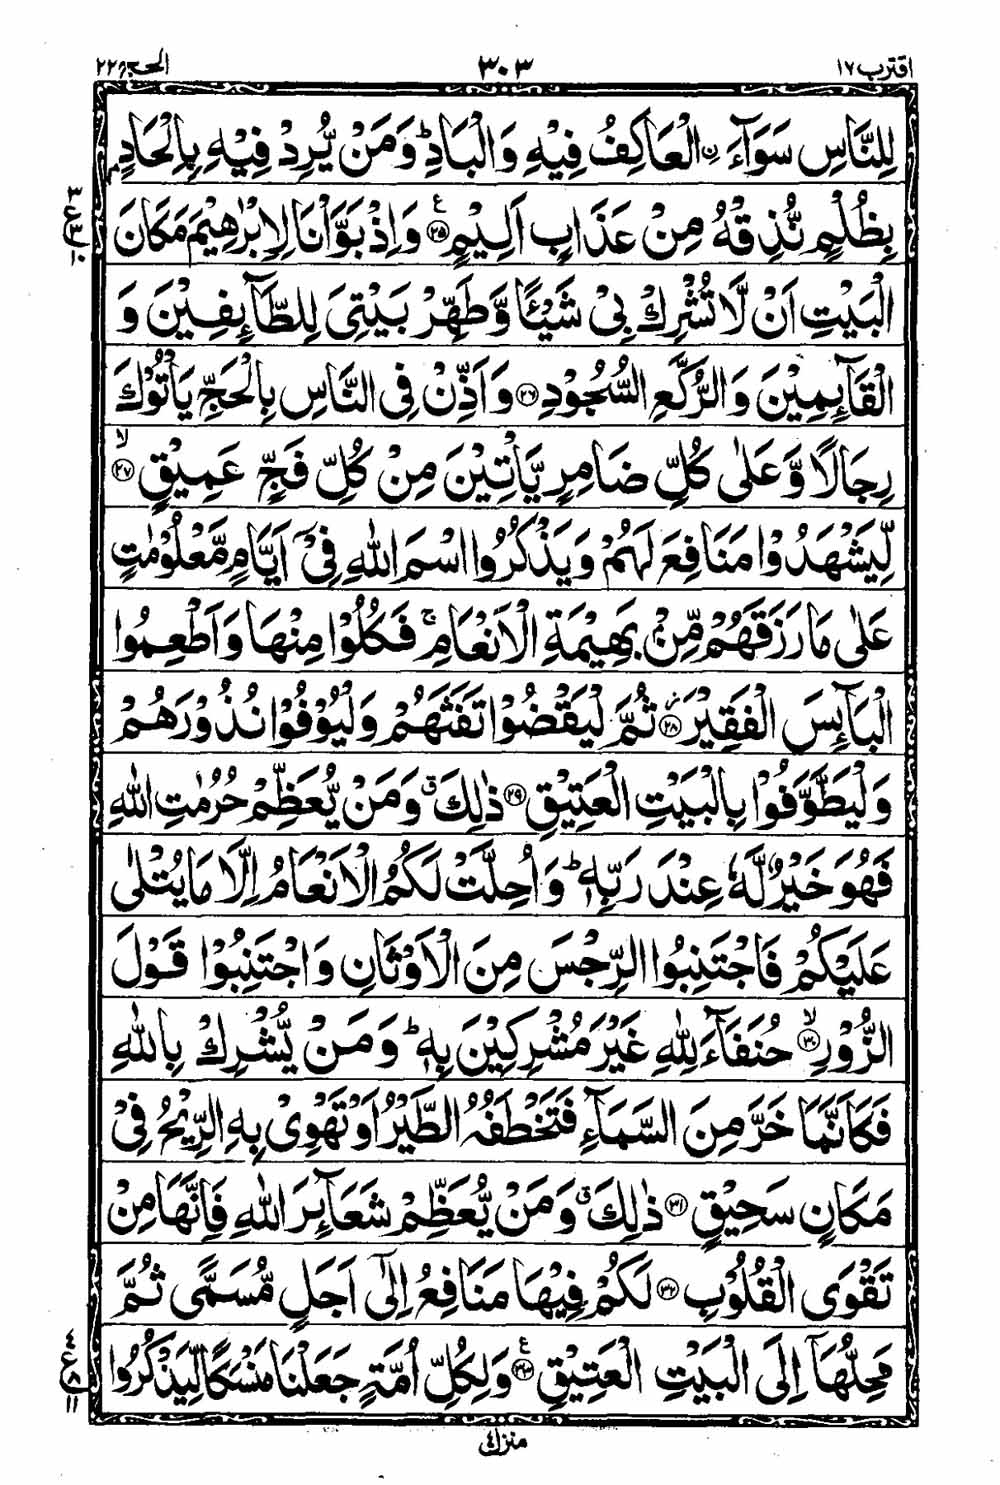 اقترب ١٧
٣٠٣
الحج ٢٢
لِلنَّاسِ سَوَآءَ ۨ الْعَاكِفُ فِيْهِ وَالْبَادِ ؕ وَمَنْ يُّرِدْ فِيْهِ بِاِلْحَادٍۭ
بِظُلْمٍ نُّذِقْهُ مِنْ عَذَابٍ اَلِيْمٍ ﴿٢٥﴾ ع وَاِذْ بَوَّاْنَا لِاِبْرٰهِيْمَ مَكَانَ
الْبَيْتِ اَنْ لَّا تُشْرِكْ بِيْ شَيْـًٔا وَّطَهِّرْ بَيْتِيَ لِلطَّآئِفِيْنَ وَ
الْقَآئِمِيْنَ وَالرُّكَّعِ السُّجُوْدِ ﴿٢٦﴾ وَاَذِّنْ فِي النَّاسِ بِالْحَجِّ يَاْتُوْكَ
رِجَالًا وَّعَلٰى كُلِّ ضَامِرٍ يَّاْتِيْنَ مِنْ كُلِّ فَجٍّ عَمِيْقٍ ﴿٢٧﴾ ۙ
لِّيَشْهَدُوْا مَنَافِعَ لَهُمْ وَيَذْكُرُوا اسْمَ اللّٰهِ فِيْٓ اَيَّامٍ مَّعْلُوْمٰتٍ
عَلٰى مَا رَزَقَهُمْ مِّنْۢ بَهِيْمَةِ الْاَنْعَامِ ۚ فَكُلُوْا مِنْهَا وَاَطْعِمُوا
الْبَآئِسَ الْفَقِيْرَ ﴿٢٨﴾ ثُمَّ لْيَقْضُوْا تَفَثَهُمْ وَلْيُوْفُوْا نُذُوْرَهُمْ
وَلْيَطَّوَّفُوْا بِالْبَيْتِ الْعَتِيْقِ ﴿٢٩﴾ ذٰلِكَ ۗ وَمَنْ يُّعَظِّمْ حُرُمٰتِ اللّٰهِ
فَهُوَ خَيْرٌ لَّهٗ عِنْدَ رَبِّهٖ ؕ وَاُحِلَّتْ لَكُمُ الْاَنْعَامُ اِلَّا مَا يُتْلٰى
عَلَيْكُمْ فَاجْتَنِبُوا الرِّجْسَ مِنَ الْاَوْثَانِ وَاجْتَنِبُوْا قَوْلَ
الزُّوْرِ ﴿٣٠﴾ ۙ حُنَفَآءَ لِلّٰهِ غَيْرَ مُشْرِكِيْنَ بِهٖ ؕ وَمَنْ يُّشْرِكْ بِاللّٰهِ
فَكَاَنَّمَا خَرَّ مِنَ السَّمَآءِ فَتَخْطَفُهُ الطَّيْرُ اَوْ تَهْوِيْ بِهِ الرِّيْحُ فِيْ
مَكَانٍ سَحِيْقٍ ﴿٣١﴾ ذٰلِكَ ۗ وَمَنْ يُّعَظِّمْ شَعَآئِرَ اللّٰهِ فَاِنَّهَا مِنْ
تَقْوَى الْقُلُوْبِ ﴿٣٢﴾ لَكُمْ فِيْهَا مَنَافِعُ اِلٰٓى اَجَلٍ مُّسَمًّى ثُمَّ
مَحِلُّهَآ اِلَى الْبَيْتِ الْعَتِيْقِ ﴿٣٣﴾ ع وَلِكُلِّ اُمَّةٍ جَعَلْنَا مَنْسَكًا لِّيَذْكُرُوا
٣
ع ٣
١٠
٤
ع ٨
١١
منزل ٤